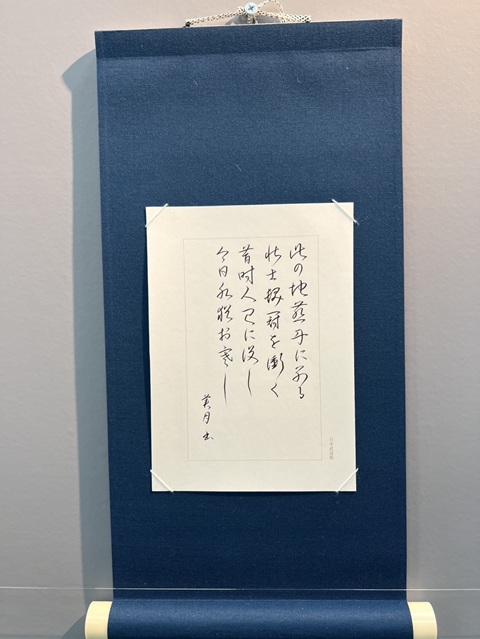 此の地燕丹に別る
壮士髪冠を衝く
昔時人已に没し
今日水猶お寒し
月 書
日本武道館